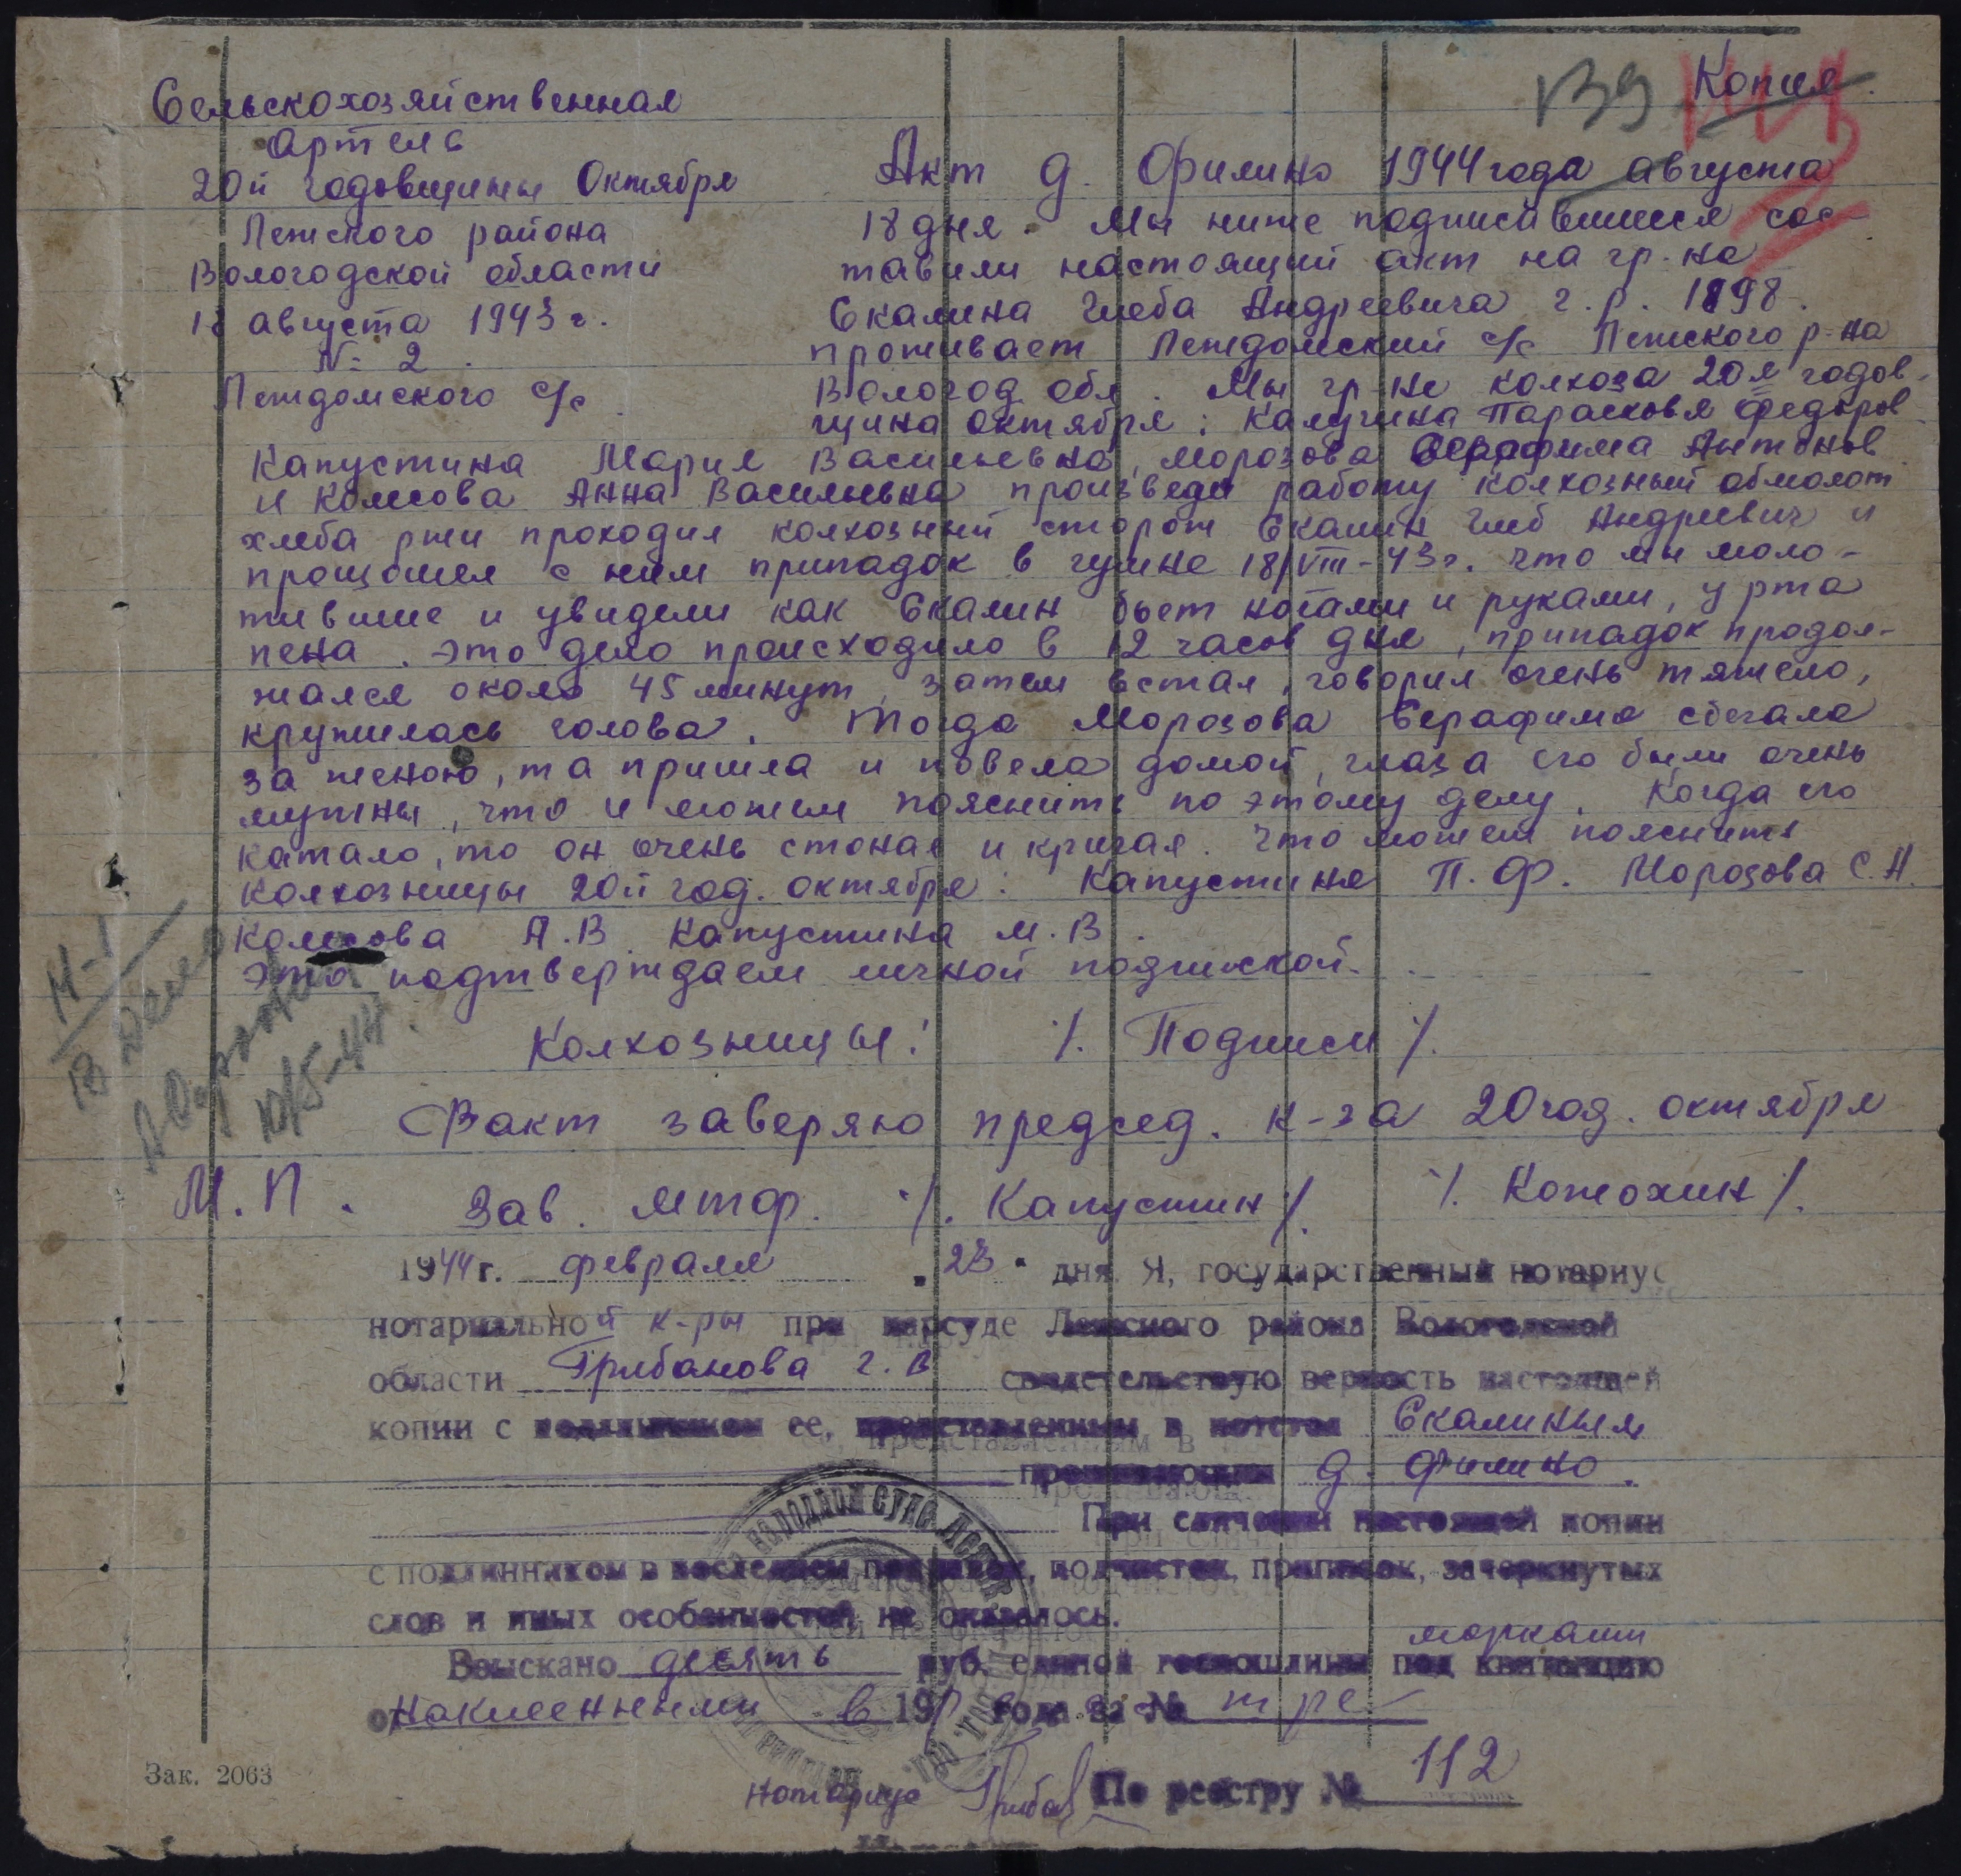 139
Копия.
Сельскохозяйственная
Артель
20й годовщины Октября
Лежского района
Вологодской области
18 августа 1943 г.
№ 2.
Леждомского с/с.
Акт д. Филино 1944 года августа
18 дня. Мы ниже подписавшиеся сос-
тавили настоящий акт на гр-на
Скалина Глеба Андреевича г.р. 1898.
проживает Леждомский с/с Лежского р-на
Вологод. обл. Мы гр-не колхоза 20я годов-
щина октября: Калугина Парасковья Федоров
Капустина Мария Васильевна, Морозова Серафима Антонов
и Колесова Анна Васильевна произведя работу колхозный обмолот
хлеба ржи проходил колхозный сторож Скалин Глеб Андриевич и
прощошел с ним припадок в гумне 18/VIII-43г. что мы моло-
тившие и увидели как Скалин бьет ногами и руками, у рта
пена. Это дело происходило в 12 часов дня, припадок продол-
жался около 45 минут, затем встал, говорил очень тяжело,
кружилась голова. Тогда Морозова Серафима сбегала
за женою, та пришла и повела домой, глаза его были очень
мутны, что и можем пояснить по этому делу. Когда его
катало, то он очень стонал и кричал. Что можем пояснить
Колхозницы 20й год. октября: Капустиня П.Ф. Морозова С.А.
Колесова А.В. Капустина М.В.
Это подтверждаем личной подпиской.
Колхозницы: /. Подписи /.
Факт заверяю председ. к-за 20 год. октября
М.П. Зав. мтф. /. Капустин /. /. Котохин /.
1944 г. февраля "23" дня Я, государственный нотариус
нотариальной к-ры при нарсуде Лежского района Вологодской
области Грибанова Г.В. свидетельствую верность настоящей
копии с подлинником ее, представленным в нотстол Скалиным
проживающим д. Филино.
При сличении настоящей копии
с подлинником в последнем поправок, подчисток, приписок, зачеркнутых
слов и иных особенностей не оказалось.
марками
Взыскано десять руб. единой госпошлины под квитанцию
наклеенными в 19 года за №
Нотариус Грибан По реестру № 112
Зак. 2063
10/5-44